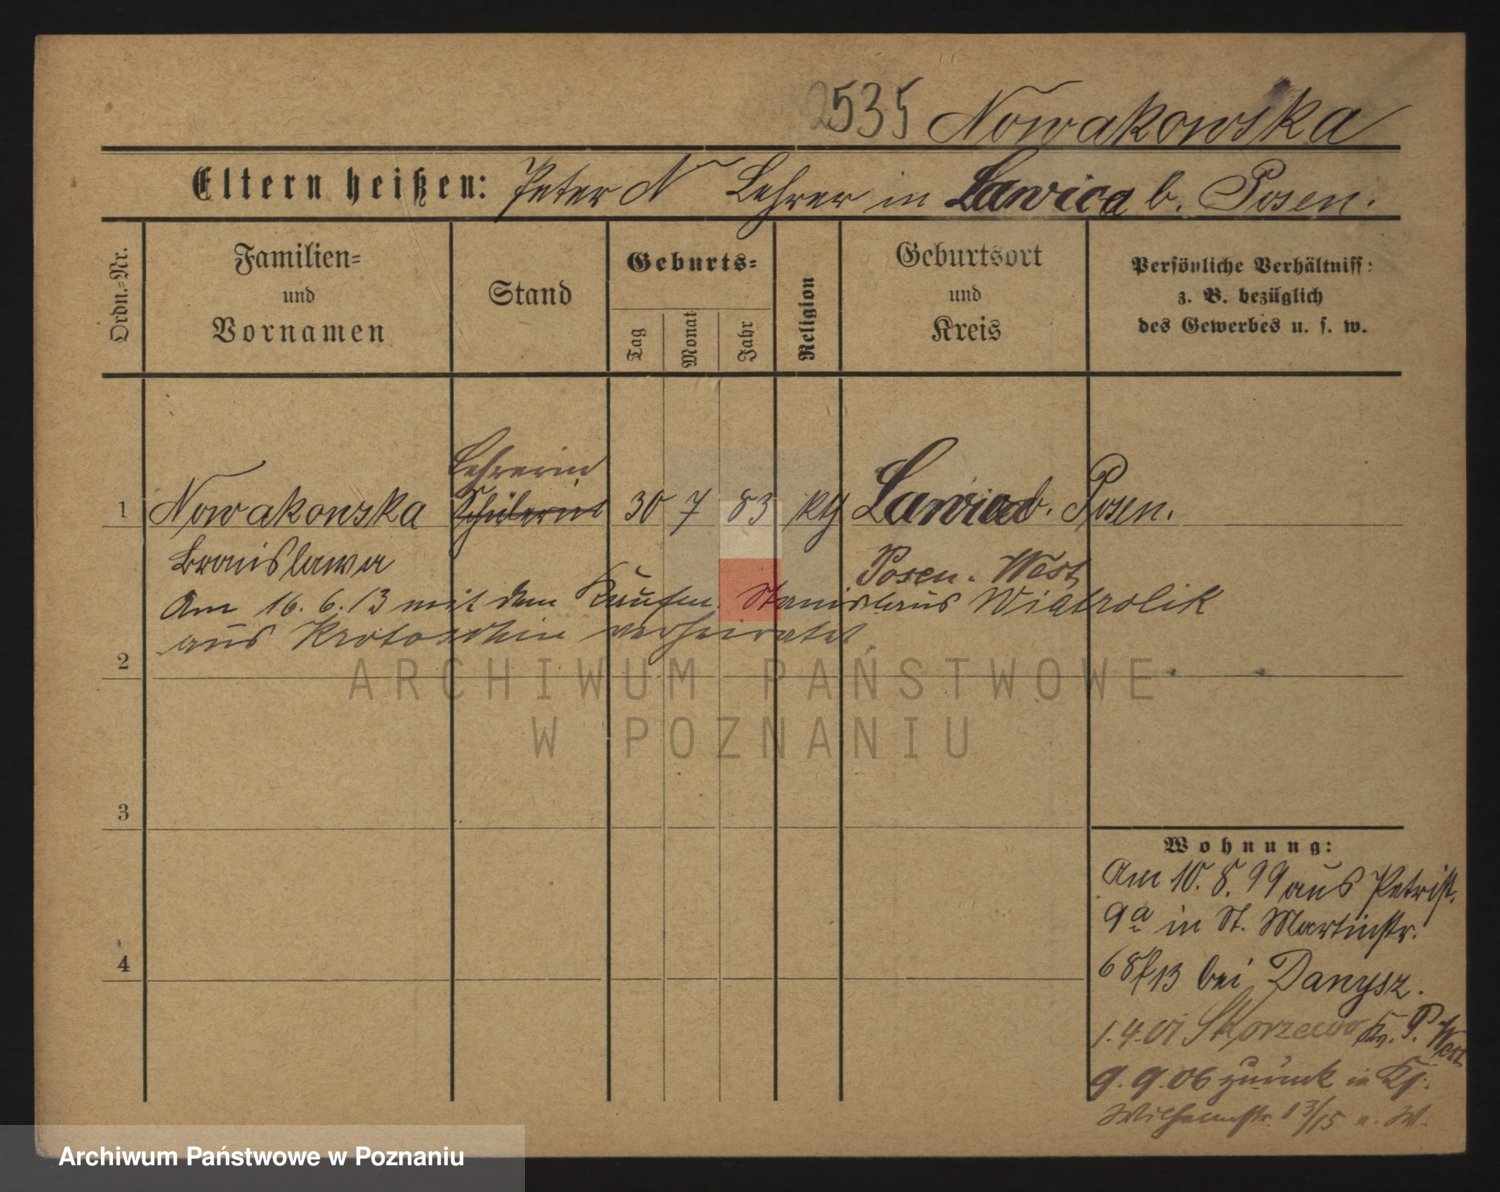 2535 Nowakowska
Eltern heißen: Peter N Lehrer in Lawica b. Posen.
Ordn.-Nr.
Familien-
und
Vornamen
Stand
Geburts-
Tag
Monat
Jahr
Religion
Geburtsort
und
Kreis
Persönliche Verhältniss:
z. B. bezüglich
des Gewerbes u. s. w.
Lehrerin
1 Nowakowska Schülerin 30 7 83 kth Lawica b. Posen.
Bronislawa Posen-West
Am 16.6.13 mit dem Kaufm. Stanislaus Wiatrolik
aus Krotoschin verheiratet
2
3
4
Wohnung:
Am 10.8.99 aus Petrist.
9a in St. Martinstr.
68/13 bei Danysz.
1.4.01 Skorzewo Kr. P. West
9.9.06 zurück in
Wilhelmstr. 13/15
ARCHIWUM PAŃSTWOWE
W POZNANIU
Archiwum Państwowe w Poznaniu